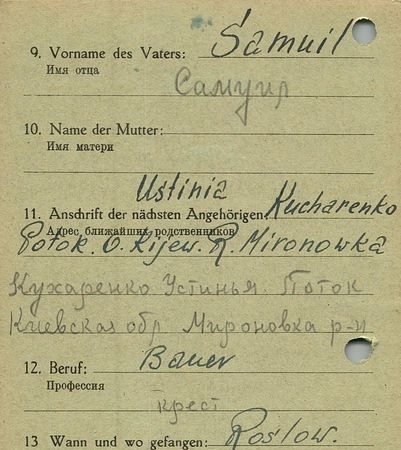 9. Vorname des Vaters: Samuil
Имя отца
Самуил
10. Name der Mutter:
Имя матери
Ustinia
11. Anschrift der nächsten Angehörigen: Kucharenko
Адрес ближайших родственников
Potok. O. Kijew. R. Mironowka
Кухаренко Устинья. Поток
Киевская обл Мироновка р-н
12. Beruf: Bauer
Профессия
крест
13 Wann und wo gefangen: Roslow.